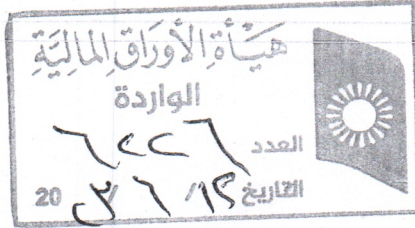 هَيْأَةِ الأَوْرَاقِ المَالِيَّةِ
الواردة
العدد ٦٢٢٦
التاريخ / ٦ / 20